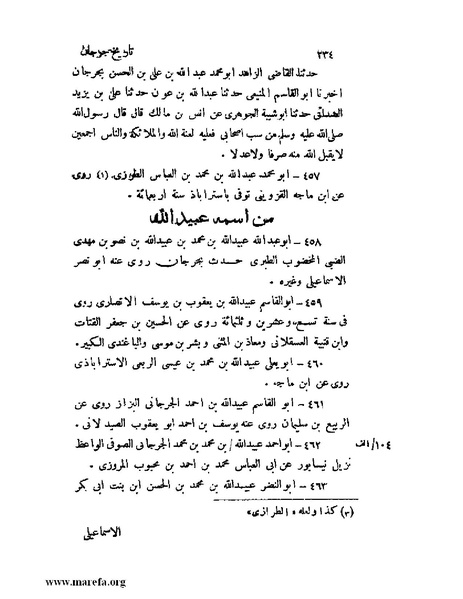 ٢٣٤ تاريخ جرجان
حدثنا القاضى الزاهد ابو محمد عبد الله بن على بن الحسن بجرجان
اخبرنا ابو القاسم المنيعى حدثنا عبد الله بن عون حدثنا على بن يزيد
الصدائى حدثنا ابو شيبة الجوهرى عن انس بن مالك قال قال رسول الله
صلى الله عليه وسلم من سب اصحابى فعليه لعنة الله والملائكة والناس اجمعين
لايقبل الله منه صرفا ولا عدلا .
٤٥٧ – ابو محمد عبدالله بن محمد بن العباس الطوزى (١) روى
عن ابن ماجه القزوينى توفى باستراباذ سنة اربعمائة .
من اسمه عبيد الله
٤٥٨ – ابو عبد الله عبيدالله بن محمد بن عبيدالله بن نصر بن مهدى
الضبى المخضوب الطبرى حدث بجرجان روى عنه ابو نصر
الاسماعيلى وغيره .
٤٥٩ – ابوالقاسم عبيدالله بن يعقوب بن يوسف الانصارى روى
فى سنة تسع وعشرين وثلثمائة روى عن الحسين بن جعفر القتات
وابن قتيبة العسقلانى ومعاذ بن المثنى وبشر بن موسى والباغندى الكبير.
٤٦٠ – ابو يعلى عبيدالله بن محمد بن عيسى الربعى الاستراباذى
روى عن ابن ماجه .
٤٦١ – ابو القاسم عبيدالله بن احمد الجرجانى البزاز روى عن
الربيع بن سليمان روى عنه يوسف بن احمد ابو يعقوب الصيدلانى .
٤٦٢ – ابو احمد عبيدالله/ بن محمد بن محمد الجرجانى الصوفى الواعظ ١٠٤/الف
نزيل نيسابور عن ابى العباس محمد بن احمد بن محبوب المروزى .
٤٦٣ – ابوالنضر عبيدالله بن محمد بن الحسن ابن بنت ابى بكر
(٣) كذا ولعله «الطرازى»
الاسماعيلى
www.marefa.org